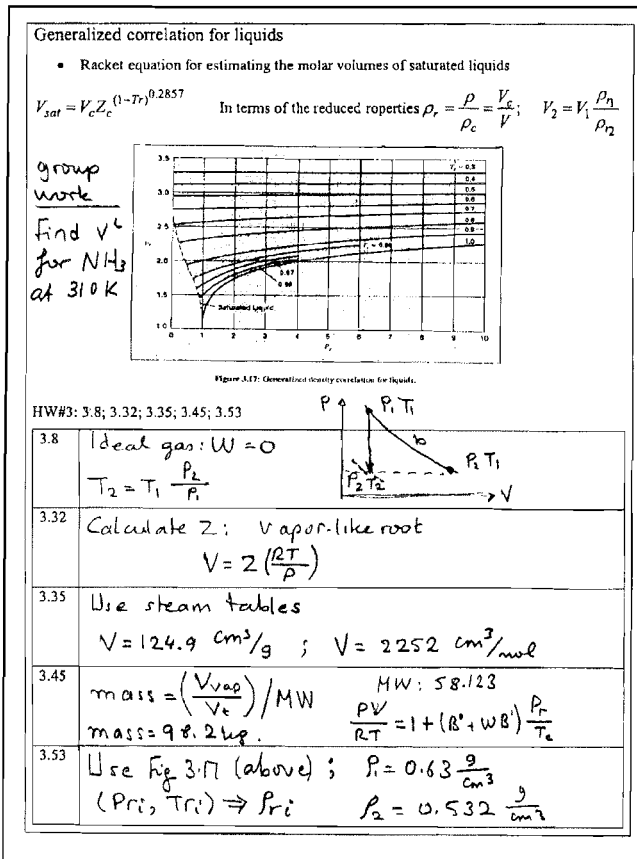 Generalized correlation for liquids
• Racket equation for estimating the molar volumes of saturated liquids
V_sat = V_c Z_c^(1-Tr)^0.2857 In terms of the reduced roperties ρ_r = ρ/ρ_c = V_c/V; V_2 = V_1 ρ_r1/ρ_r2
group
work
Find V^L
for NH3
at 310 K
3.5
3.0
2.5
2.0
1.5
1.0
T_r = 0.3
0.4
0.5
0.6
0.7
0.8
0.9
1.0
0.97
0.99
Saturated Liquid
0 1 2 3 4 5 6 7 8 9 10
P_r
Figure 3.17: Generalized density correlation for liquids.
HW#3: 3.8; 3.32; 3.35; 3.45; 3.53
P
P1 T1
b
P2 T1
P2 T2
V
3.8 Ideal gas: W = 0
T2 = T1 P2/P1
3.32 Calculate Z: Vapor-like root
V = Z (RT/P)
3.35 Use steam tables
V = 124.9 cm³/g ; V = 2252 cm³/mol
3.45 mass = (V_vap/V_t)/MW MW: 58.123
mass = 98.2 kg. PV/RT = 1 + (B° + WB') P_r/T_e
3.53 Use Fig 3.17 (above) ; ρ1 = 0.63 g/cm³
(Pri, Tri) ⇒ ρri ρ2 = 0.532 g/cm³